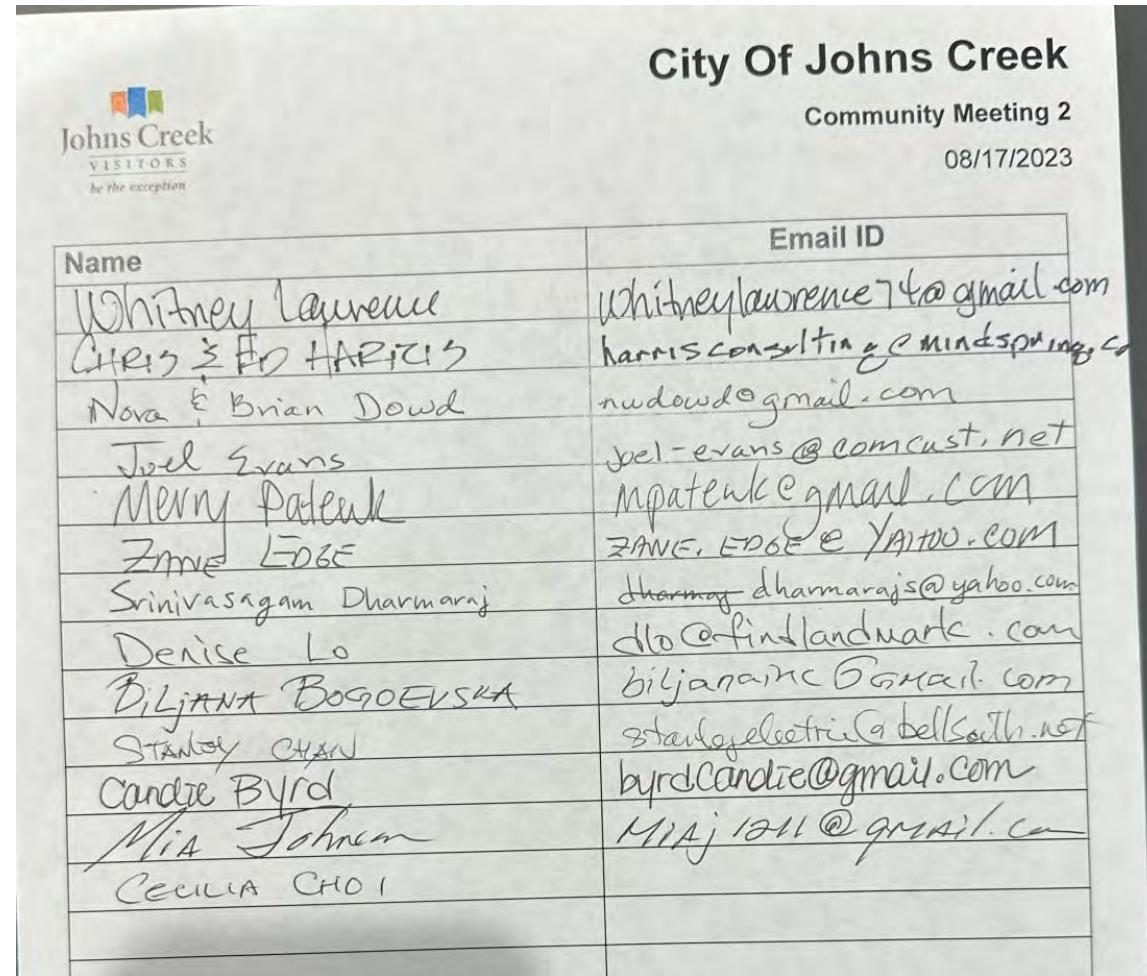 City Of Johns Creek
Community Meeting 2
08/17/2023
Johns Creek
VISITORS
be the exception
Name Email ID
Whitney Lawrence whitneylawrence74@gmail.com
CHRIS & ED HARRIS harrisconsulting@mindspring.co
Nova & Brian Dowd nwdowd@gmail.com
Joel Evans joel-evans@comcast.net
Merry Patenk mpatenk@gmail.com
ZANE EDGE ZANE.EDGE@YAHOO.COM
Srinivasagam Dharmaraj dharmarajs@yahoo.com
Denise Lo dlo@findlandmark.com
BILJANA BOGOEVSKA biljanainc@Gmail.com
STANLEY CHAN
Candie Byrd byrdcandie@gmail.com
MIA Johnson MIAj1211@gmail.com
CECILIA CHOI